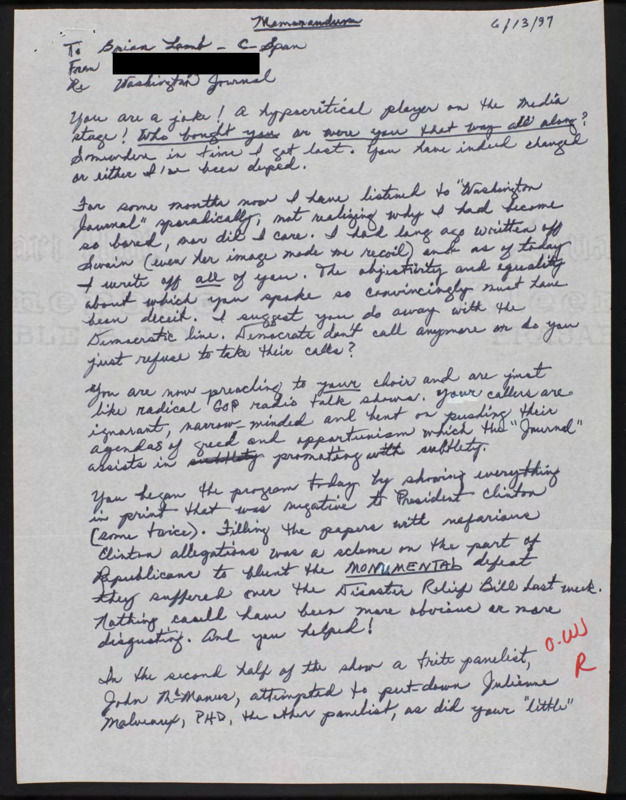 Memorandum
6/13/97
To Brian Lamb - C-Span
From
Re Washington Journal
You are a joke! A hypocritical player on the media
stage! Who bought you or were you that way all along?
Somewhere in time I got lost. You have indeed changed
or either I've been duped.
For some months now I have listened to "Washington
Journal" sporadically, not realizing why I had become
so bored, nor did I care. I had long ago written off
Swain (even her image made me recoil) and as of today
I write off all of you. The objectivity and equality
about which you spoke so convincingly must have
been deceit. I suggest you do away with the
Democratic line. Democrats don't call anymore or do you
just refuse to take their calls?
You are now preaching to your choir and are just
like radical GOP radio talk shows. Your callers are
ignorant, narrow-minded and bent on pushing their
agendas of greed and opportunism which the "Journal"
assists in promoting with subtlety.
You began the program today by showing everything
in print that was negative to President Clinton
(some twice). Filling the papers with nefarious
Clinton allegations was a scheme on the part of
Republicans to blunt the MONUMENTAL defeat
they suffered over the Disaster Relief Bill last week.
Nothing could have been more obvious or more
disgusting. And you helped!
O.W
R
In the second half of the show a trite panelist,
John McManus, attempted to put-down Julienne
Malveaux, PHD, the other panelist, as did your "little"